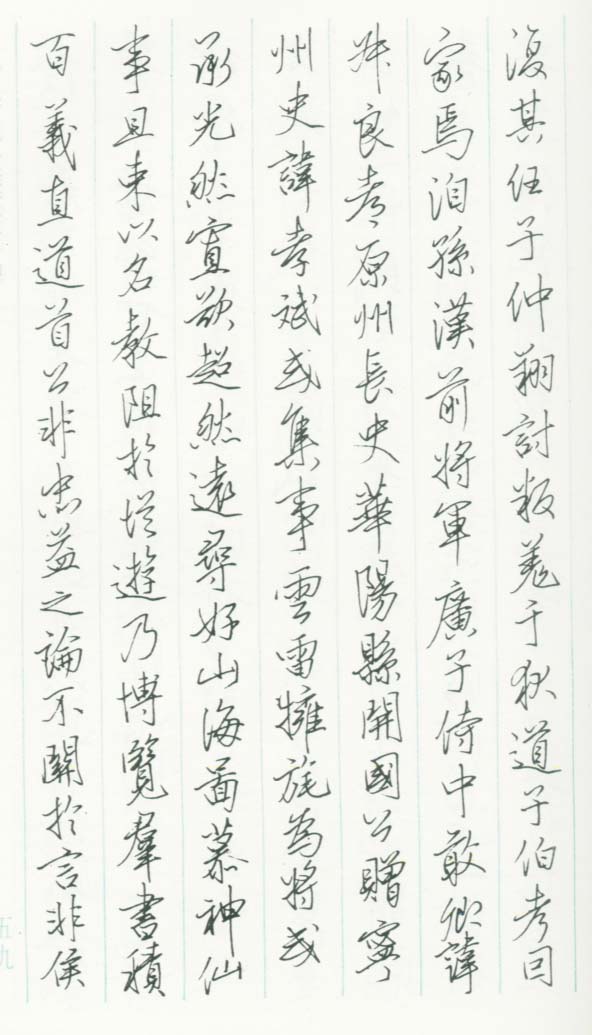 復其任子仲翔討叛羌于狄道子伯考囙
家焉洎孫漢前將軍廣子侍中敢卿諱
叔良考原州長史華陽縣開國公贈寧
州史諱孝斌或集事雲雷擁旄為將或
承光然實欲超然遠尋好山海啚慕神仙
事且束以名教阻於從遊乃博覽羣書積
百義直道首公非忠益之論不關於言非侯
五九